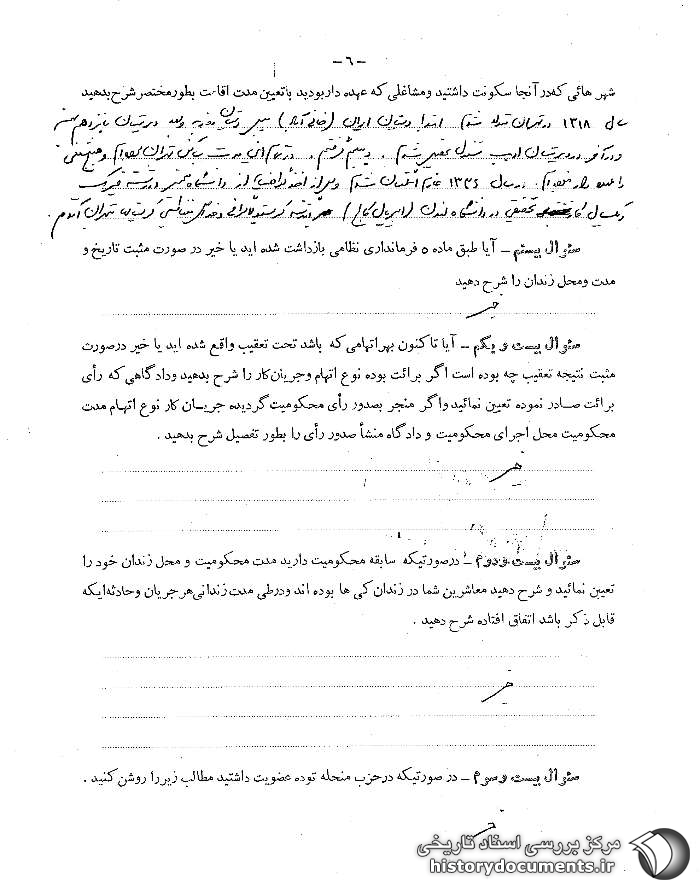 -٦-
شهر هائی که در آنجا سکونت داشتید ومشاغلی که عهده دار بودید با تعیین مدت اقامت بطور مختصر شرح بدهید
سال ۱۳۱۸ در تهران متولد شدم ابتدا دبستان ایران
و در آخر در دبیرستان ادیب مشغول تحصیل شدم
را عهده دار نبوده ام. در سال ۱۳۳۶ عازم لندن شدم و پس از اخذ از دانشگاه در رشته فیزیک
یکسال تحقیقی در دانشگاه لندن (امپریال کالج) تهران آمدم.
سئوال بیستم - آیا طبق ماده ٥ فرمانداری نظامی بازداشت شده اید یا خیر در صورت مثبت تاریخ و
مدت ومحل زندان را شرح دهید
خیر
سئوال بیست و یکم - آیا تا کنون بهر اتهامی که باشد تحت تعقیب واقع شده اید یا خیر درصورت
مثبت نتیجه تعقیب چه بوده است اگر برائت بوده نوع اتهام وجریان کار را شرح بدهید ودادگاهی که رأی
برائت صادر نموده تعیین نمائید واگر منجر بصدور رأی محکومیت گردیده جریان کار نوع اتهام مدت
محکومیت محل اجرای محکومیت و دادگاه منشأ صدور رأی را بطور تفصیل شرح بدهید .
خیر
سئوال بیست و دوم - درصورتیکه سابقه محکومیت دارید مدت محکومیت و محل زندان خود را
تعیین نمائید و شرح دهید معاشرین شما در زندان کی ها بوده اند ودرطی مدت زندانی هر جریان وحادثه ایکه
قابل ذکر باشد اتفاق افتاده شرح دهید .
خیر
سئوال بیست وسوم - در صورتیکه درحزب منحله توده عضویت داشتید مطالب زیر را روشن کنید .
خیر
مرکز بررسی اسناد تاریخی
historydocuments.ir